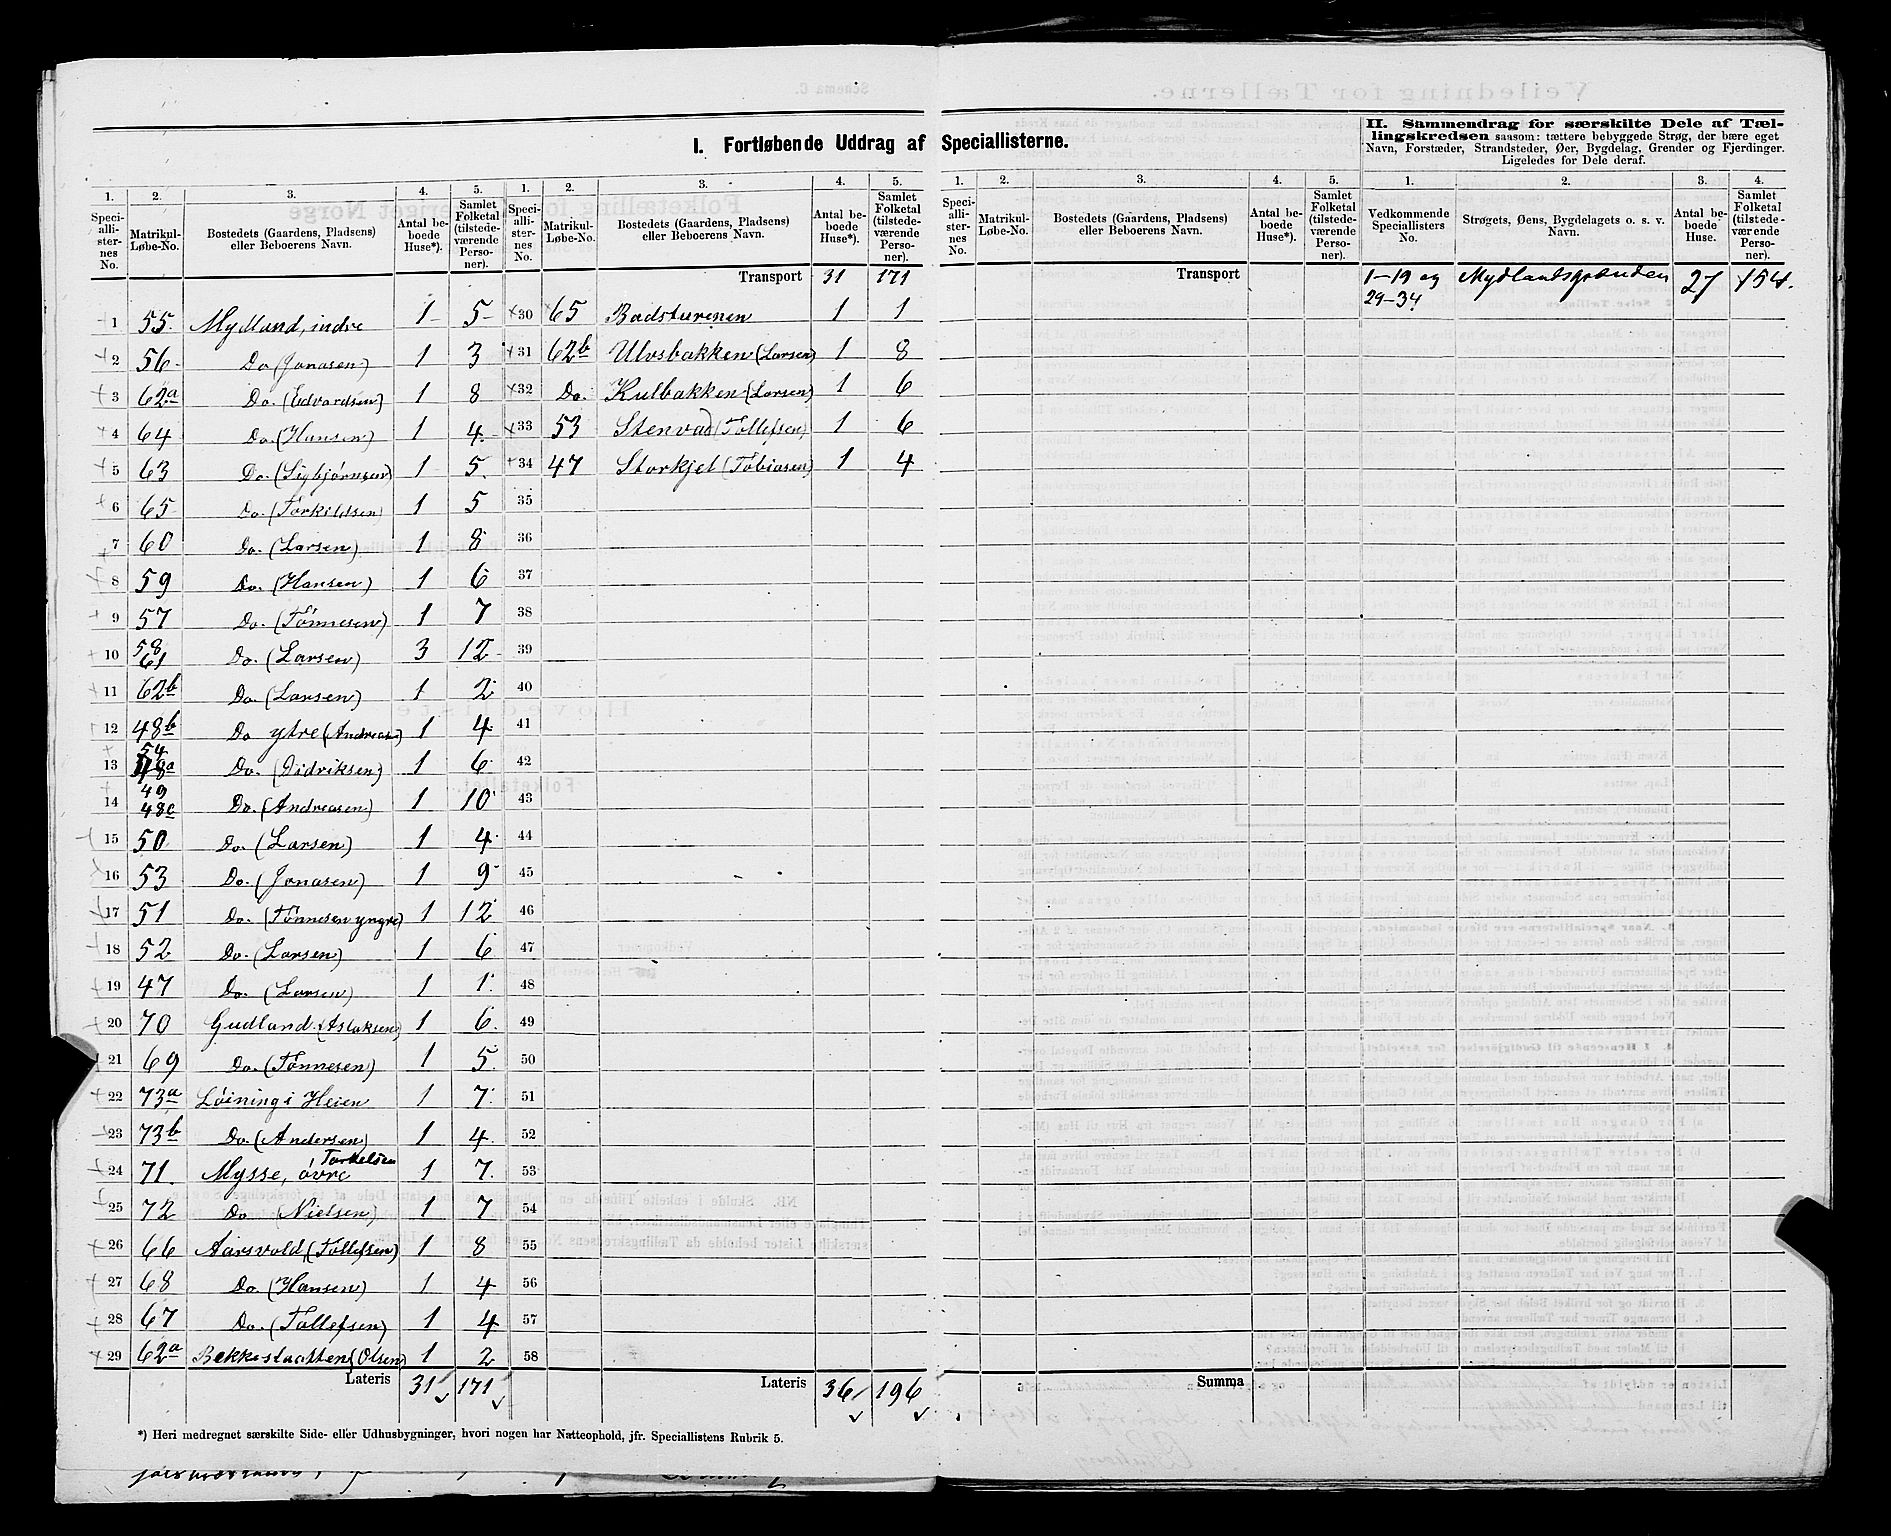 I. Fortløbende Uddrag af Speciallisterne.
II. Sammendrag for særskilte Dele af Tæl-
lingskredsen saasom: tættere bebyggede Strøg, der bære eget
Navn, Forstæder, Strandsteder, Øer, Bygdelag, Grender og Fjerdinger.
Ligeledes for Dele deraf.
1. 2. 3. 4. 5. 1. 2. 3. 4. 5. 1. 2. 3. 4. 5. 1. 2. 3. 4.
Speci-allister-nes No. Matrikul-Løbe-No. Bostedets (Gaardens, Pladsens) eller Beboerens Navn. Antal be-boede Huse*). Samlet Folketal (tilstede-værende Perso-ner).
Speci-allister-nes No. Matrikul-Løbe-No. Bostedets (Gaardens, Pladsens) eller Beboerens Navn. Antal be-boede Huse*). Samlet Folketal (tilstede-værende Perso-ner).
Speci-allister-nes No. Matrikul-Løbe-No. Bostedets (Gaardens, Pladsens) eller Beboerens Navn. Antal be-boede Huse*). Samlet Folketal (tilstede-værende Perso-ner).
Vedkommende Speciallisters No. Strøgets, Øens, Bygdelagets o. s. v. Navn. Antal be-boede Huse. Samlet Folketal (tilstede-værende Perso-ner).
1 55. Mydland, indre 1 5
2 56 Do (Jonasen) 1 3
3 62a Do. (Edvardsen) 1 8
4 64 Do. (Hansen) 1 4
5 63 Do. (Sigbjørnsen) 1 5
6 65 Do. (Torkildsen) 1 5
7 60 Do. (Larsen) 1 8
8 59 Do. (Hansen) 1 6
9 57 Do. (Tønnesen) 1 7
10 58 61 Do. (Larsen) 3 12
11 62b Do. (Larsen) 1 2
12 48b Do ytre (Andreas) 1 4
13 54 48a Do. (Didriksen) 1 6
14 49 48c Do. (Andreasen) 1 10
15 50 Do. (Larsen) 1 4
16 53 Do. (Jonasen) 1 9
17 51 Do. (Tønnesen yngre) 1 12
18 52 Do. (Larsen) 1 6
19 47 Do. (Larsen) 1 1
20 70 Gudland (Aslaksen) 1 6
21 69 Do. (Tønnesen) 1 5
22 73a Løining i Heien 1 7
23 73b Do. (Andersen) 1 4
24 71. Mysse, øvre Torkelsen 1 7
25 72 Do (Nielsen) 1 7
26 66 Aarsvold, (Tollefsen) 1 8
27 68 Do (Hansen) 1 4
28 67 Do. (Tollefsen) 1 4
29 62a Bekkestaatten (Olsen) 1 2
Lateris 31 171
Transport 31 171
30 65 Badsturenen 1 1
31 62b Ulvsbakken (Larsen) 1 8
32 Do. Kulbakken (Larsen) 1 6
33 53 Stenvad (Tollefsen) 1 6
34 47 Storkjet (Tobiasen) 1 4
35
36
37
38
39
40
41
42
43
44
45
46
47
48
49
50
51
52
53
54
55
56
57
58
Lateris 36 196
Transport
Summa
1–19 og 29–34 Mydlandsgrænden 27 154.
*) Heri medregnet særskilte Side- eller Udhusbygninger, hvori nogen har Natteophold, jfr. Speciallistens Rubrik 5.